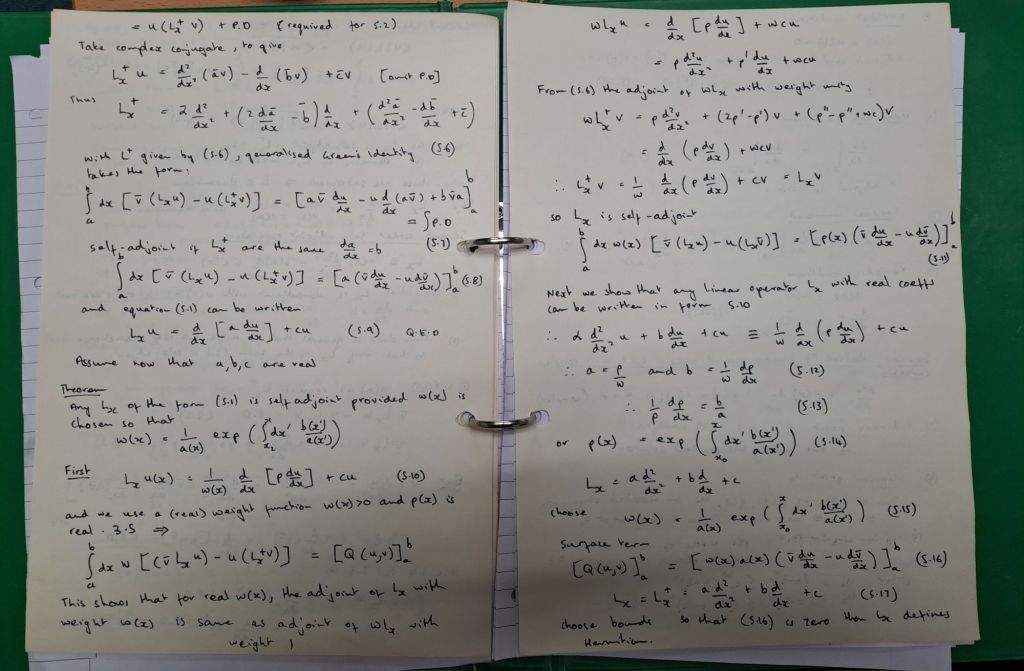 = u (Lₓ⁺ v) + P.D (required for 5.2)
Take complex conjugate, to give
Lₓ⁺ u = d²/dx² (āv) − d/dx (b̄v) + c̄v [omit P.D]
Thus
Lₓ⁺ = ā d²/dx² + (2 dā/dx − b̄) d/dx + (d²ā/dx² − db̄/dx + c̄)
(5.6)
with L⁺ given by (5.6), generalised Green's Identity
takes the form:
∫ₐᵇ dx [v̄ (Lₓu) − u (Lₓ⁺v)] = [av̄ du/dx − u d/dx (av̄) + b v̄a]ₐᵇ
= ∫P.D
(5.7)
self-adjoint if Lₓ⁺ are the same da/dx = b
∫ₐᵇ dx [v̄ (Lₓu) − u (Lₓ⁺v)] = [a (v̄ du/dx − u dv̄/dx)]ₐᵇ (5.8)
and equation (5.1) can be written
Lₓ u = d/dx [a du/dx] + cu (5.9) Q.E.D
Assume now that a, b, c are real
Theorem
Any Lₓ of the form (5.1) is self adjoint provided w(x) is
chosen so that
w(x) = 1/a(x) exp (∫ₓ₂ˣ dx' b(x')/a(x'))
First
Lₓ u(x) = 1/w(x) d/dx [p du/dx] + cu (5.10)
and we use a (real) weight function w(x)>0 and p(x) is
real. 3.5 ⇒
∫ₐᵇ dx w [(v̄ Lₓu) − u (Lₓ⁺v)] = [Q (u,v)]ₐᵇ
This shows that for real w(x), the adjoint of Lₓ with
weight w(x) is same as adjoint of wLₓ with
weight 1
wLₓu = d/dx [p du/dx] + wcu
= p d²u/dx² + p' du/dx + wcu
From (5.6) the adjoint of wLₓ with weight unity
wLₓ⁺ v = p d²v/dx² + (2p'−p') v + (p''−p''+wc)v
= d/dx (p dv/dx) + wcv
∴ Lₓ⁺ v = 1/w d/dx (p dv/dx) + cv = Lₓv
so Lₓ is self-adjoint
∫ₐᵇ dx w(x) [v̄ (Lₓu) − u (Lₓv̄)] = [p(x) (v̄ du/dx − u dv̄/dx)]ₐᵇ
(5.11)
Next we show that any linear operator Lₓ with real coeffs
can be written in form 5.10
∴ a d²/dx² u + b du/dx + cu ≡ 1/w d/dx (p du/dx) + cu
∴ a = p/w and b = 1/w dp/dx (5.12)
∴ 1/p dp/dx = b/a (5.13)
or p(x) = exp (∫ₓ₀ˣ dx' b(x')/a(x')) (5.14)
Lₓ = a d²/dx² + b d/dx + c
choose w(x) = 1/a(x) exp (∫ₓ₀ˣ dx' b(x')/a(x')) (5.15)
Surface term
[Q(u,v)]ₐᵇ = [w(x) a(x) (v̄ du/dx − u dv̄/dx)]ₐᵇ (5.16)
Lₓ = Lₓ⁺ = a d²/dx² + b d/dx + c (5.17)
choose bounds so that (5.16) is zero then Lₓ defines
Hermitian.